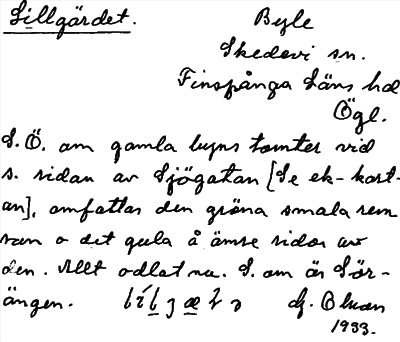 Sillgärdet.
Byle
Skedevi sn.
Finspånga Läns hd
Ögl.
S. Ö. om gamla byns tomter vid
s. sidan av Sjögatan [Se ek-kort-
an], omfattar den gröna smala rem
san o det gula å ömse sidor av
den. Allt odlat nu. S. om är Sör-
ängen.
1933.